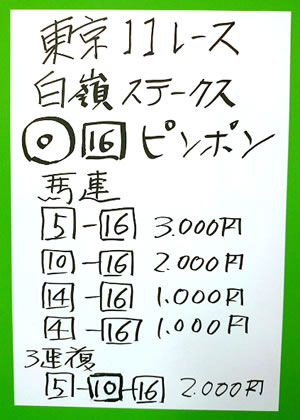 東京11レース
白嶺ステークス
◎ 16 ピンポン
馬連
5-16 3.000円
10-16 2.000円
14-16 1.000円
4-16 1.000円
3連複
5-10-16 2.000円